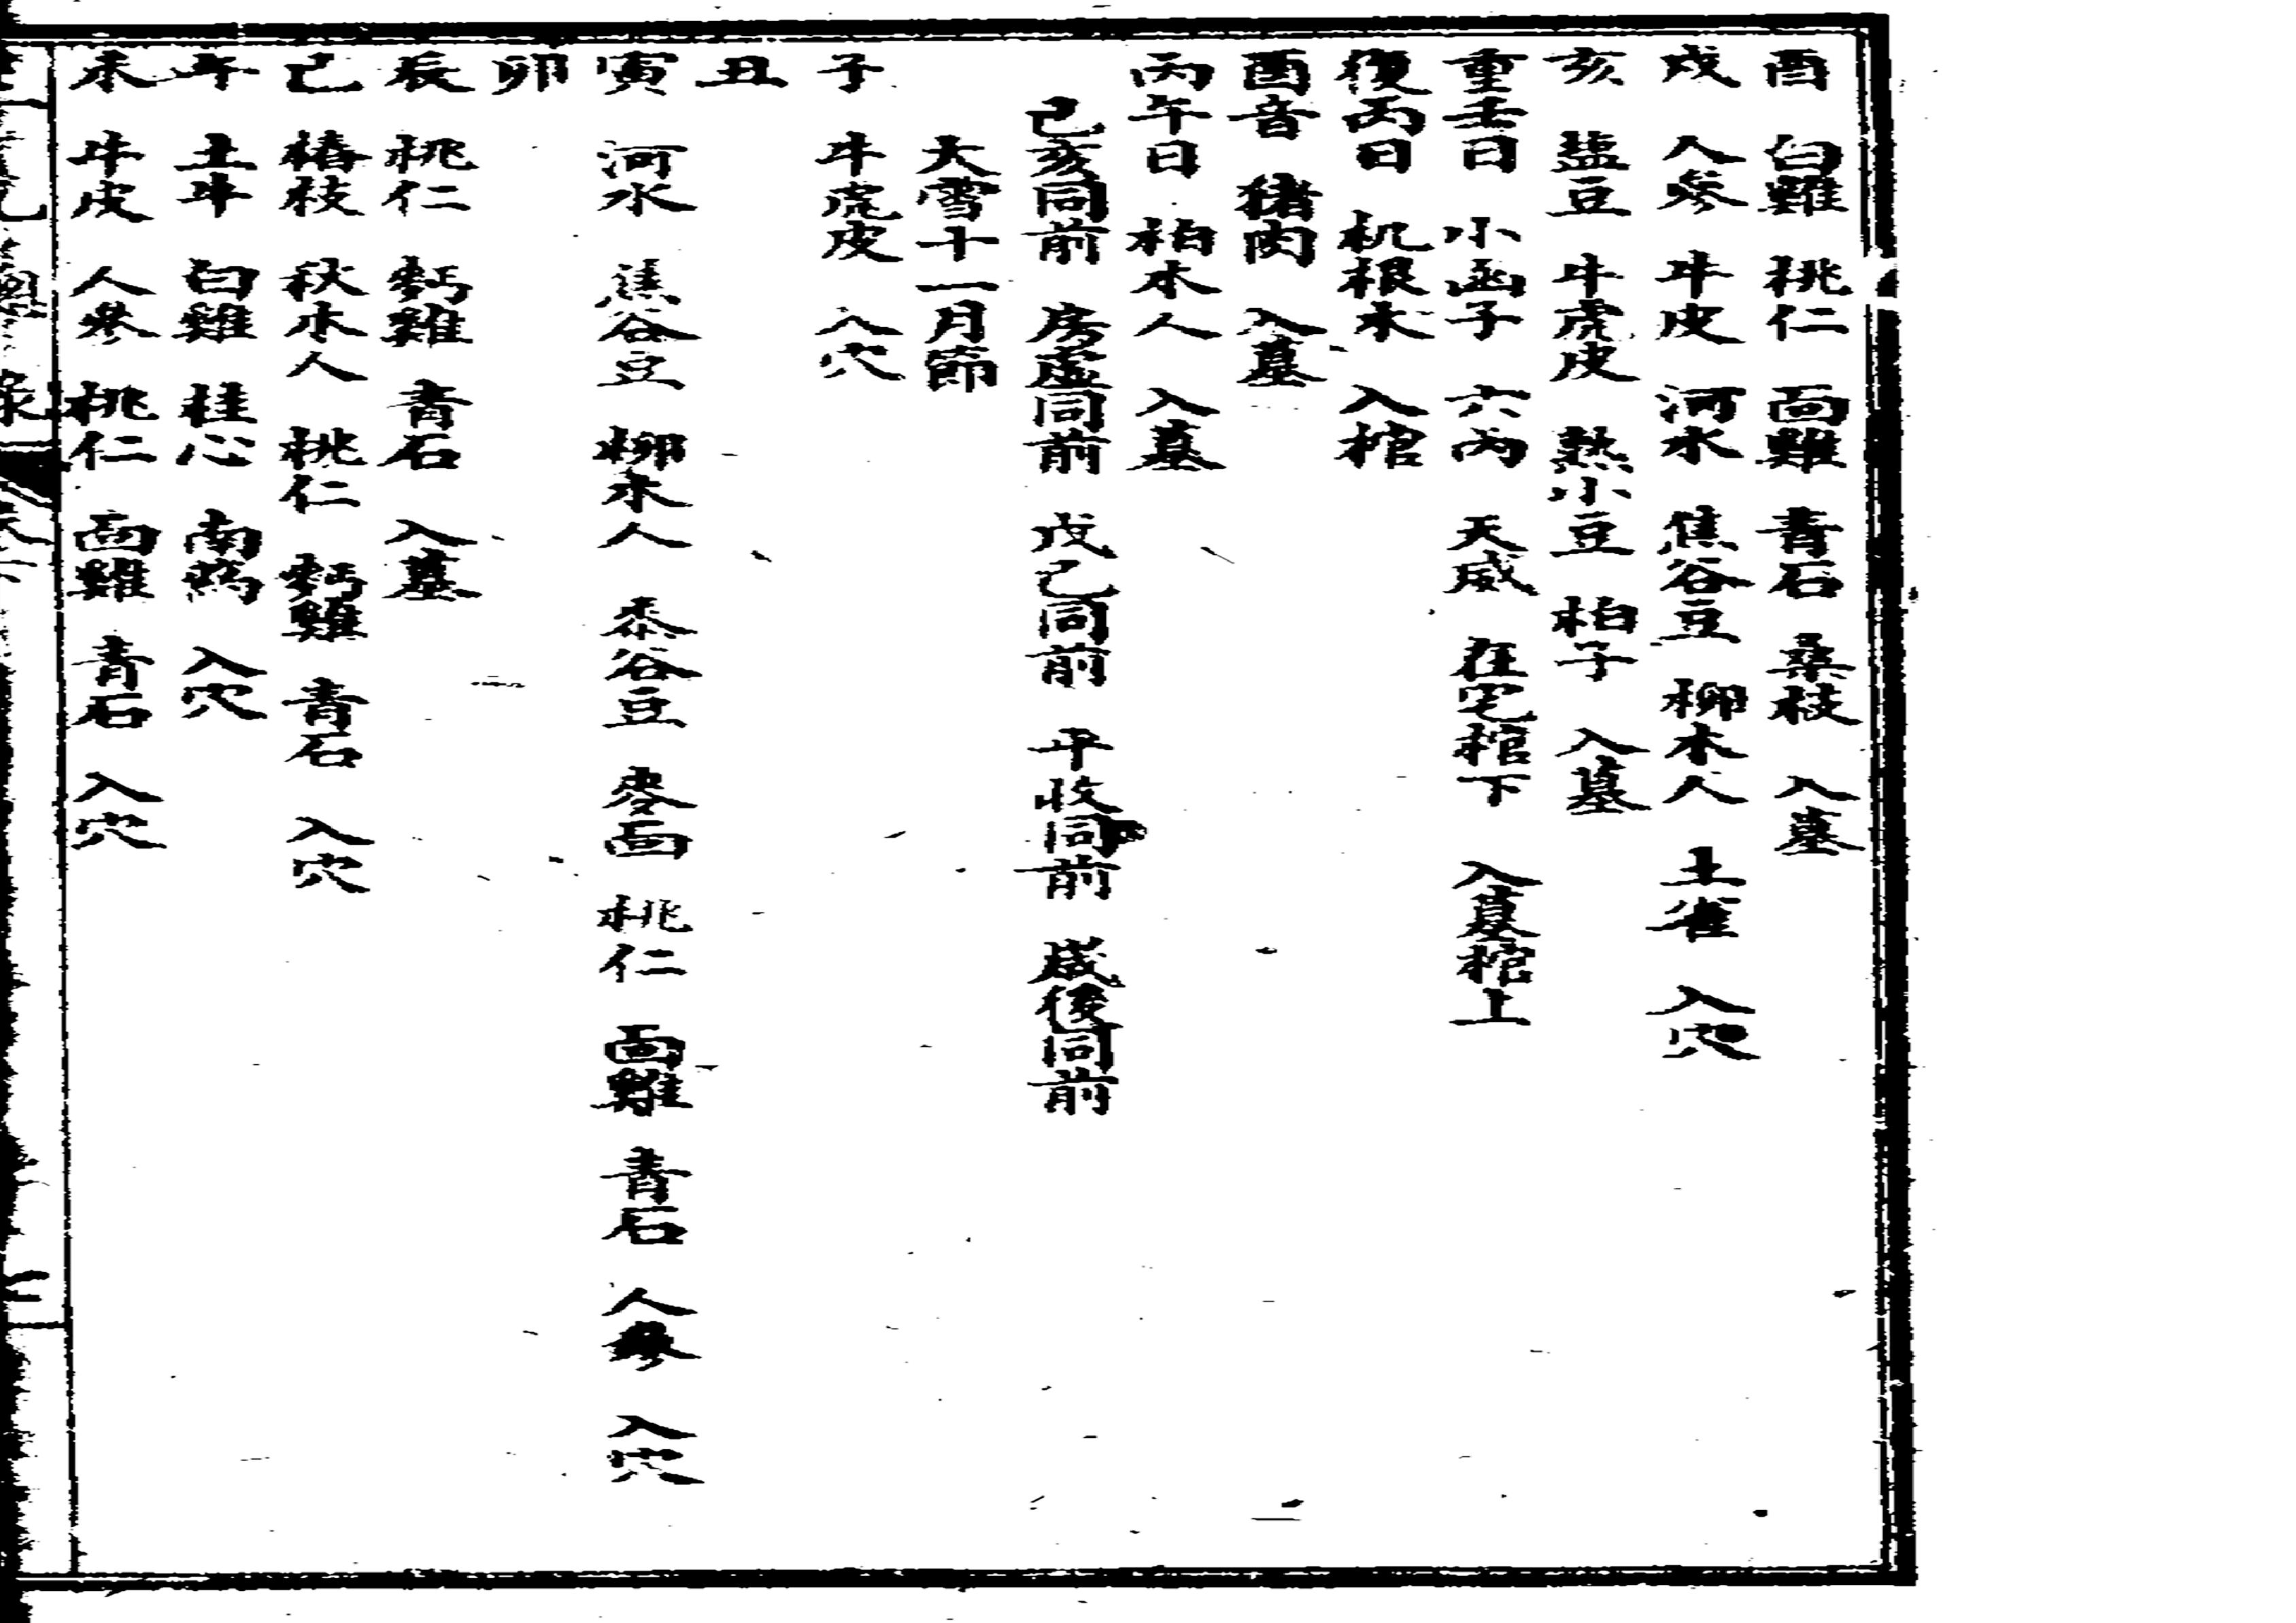 酉 白雞 桃仁 面雞 青石 桑枝 入墓
戌 人參 牛皮 河水 焦谷豆 柳木人 土雀 入穴
亥 塩豆 牛虎皮 熟小豆 柏子 入墓
重壬日 小函子 六內 天威 在宅棺下 入墓棺上
復丙日 机根木 入棺
酉音 猪肉 入墓
丙午日 柏木人 入墓
己亥同前 房虛同前 戊己同前 平收同前 歲後同前
大雪十一月節
子 牛虎皮 入穴
丑
寅 河水 焦谷豆 柳木人 黍谷豆 麥面 桃仁 面雞 青石 人參 入穴
卯
辰 桃仁 麪雞 青石 入墓
巳 椿枝 秋木人 桃仁 麪雞 青石 入穴
午 土牛 白雞 桂心 南 入穴
未 牛皮 人參 桃仁 面雞 青石 入穴